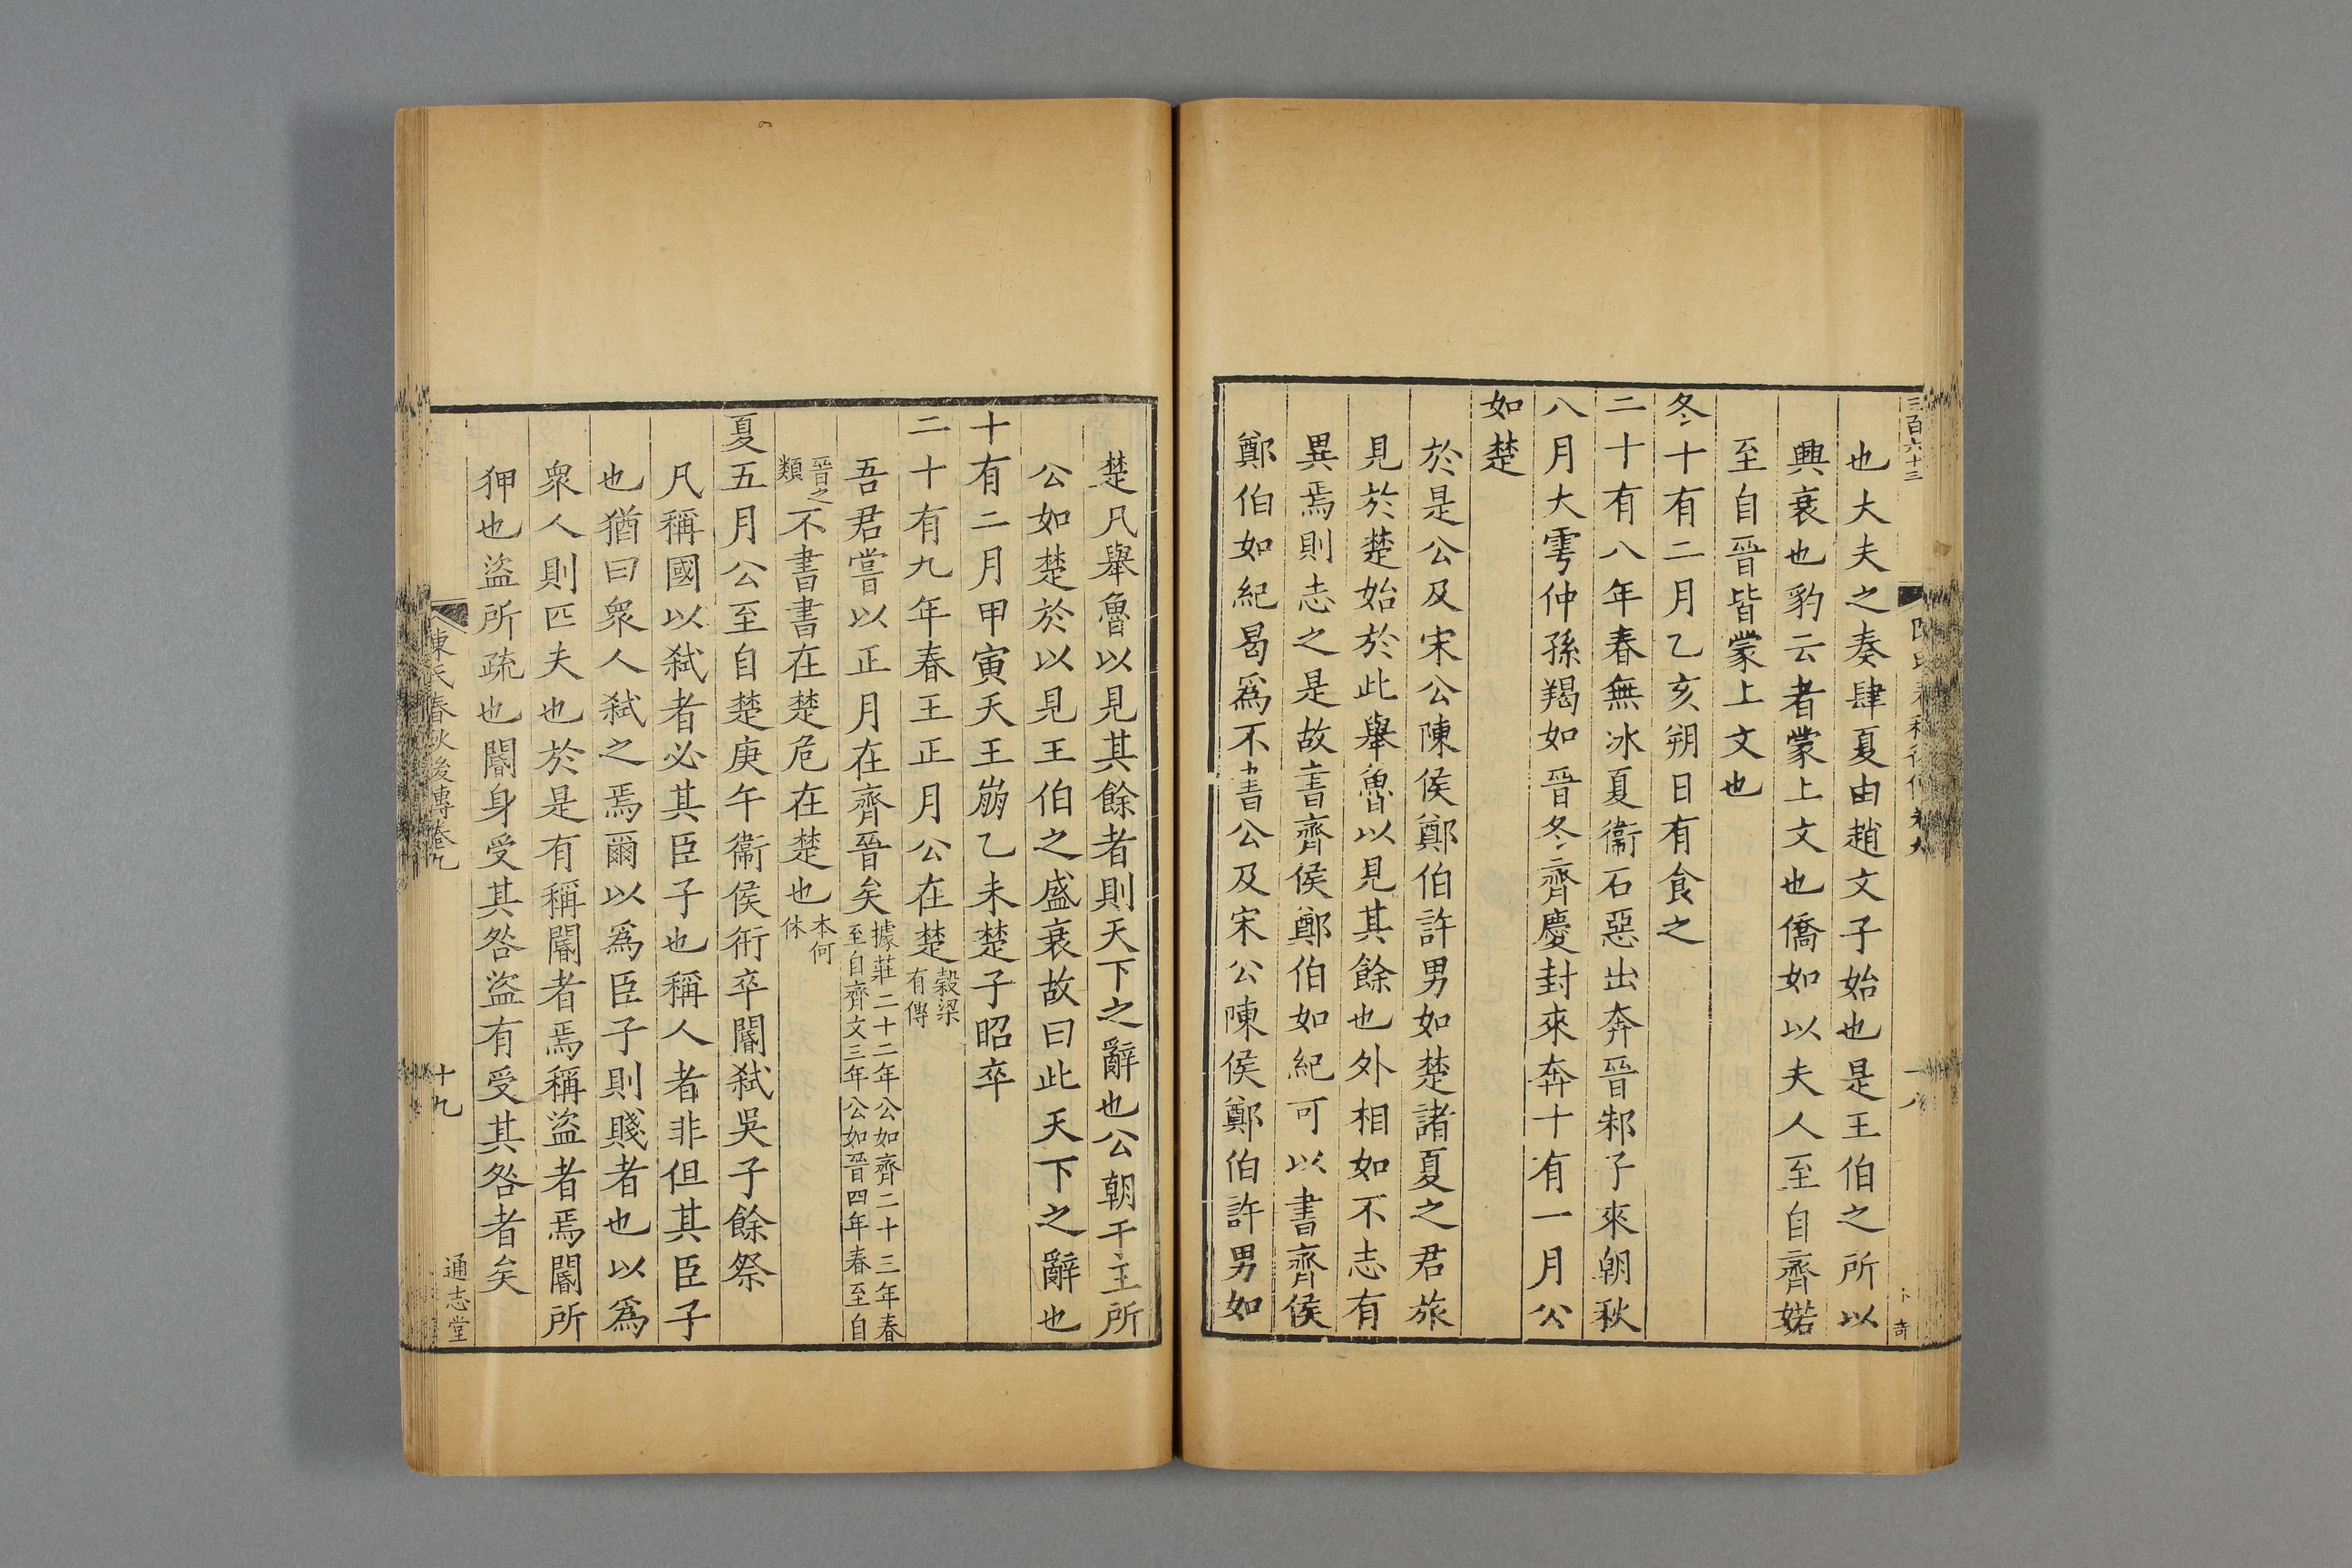 三百六十三
也大夫之奏肆夏由趙文子始也是王伯之所以
興衰也豹云者蒙上文也僑如以夫人至自齊婼
至自晉皆蒙上文也
冬十有二月乙亥朔日有食之
二十有八年春無冰夏衞石惡出奔晉邾子來朝秋
八月大雩仲孫羯如晉冬齊慶封來奔十有一月公
如楚
於是公及宋公陳侯鄭伯許男如楚諸夏之君旅
見於楚始於此舉魯以見其餘也外相如不志有
異焉則志之是故書齊侯鄭伯如紀可以書齊侯
鄭伯如紀曷爲不書公及宋公陳侯鄭伯許男如
楚凡舉魯以見其餘者則天下之辭也公朝于王所
公如楚於以見王伯之盛衰故曰此天下之辭也
十有二月甲寅天王崩乙未楚子昭卒
二十有九年春王正月公在楚穀梁有傳
吾君嘗以正月在齊晉矣據莊二十二年公如齊二十三年春至自齊文三年公如晉四年春至自
晉之類不書書在楚危在楚也本何休
夏五月公至自楚庚午衞侯衎卒閽弒吳子餘祭
凡稱國以弒者必其臣子也稱人者非但其臣子
也猶曰衆人弒之焉爾以爲臣子則賤者也以爲
衆人則匹夫也於是有稱閽者焉稱盜者焉閽所
狎也盜所疏也閽身受其咎盜有受其咎者矣
陳氏春秋後傳卷九
十九
通志堂